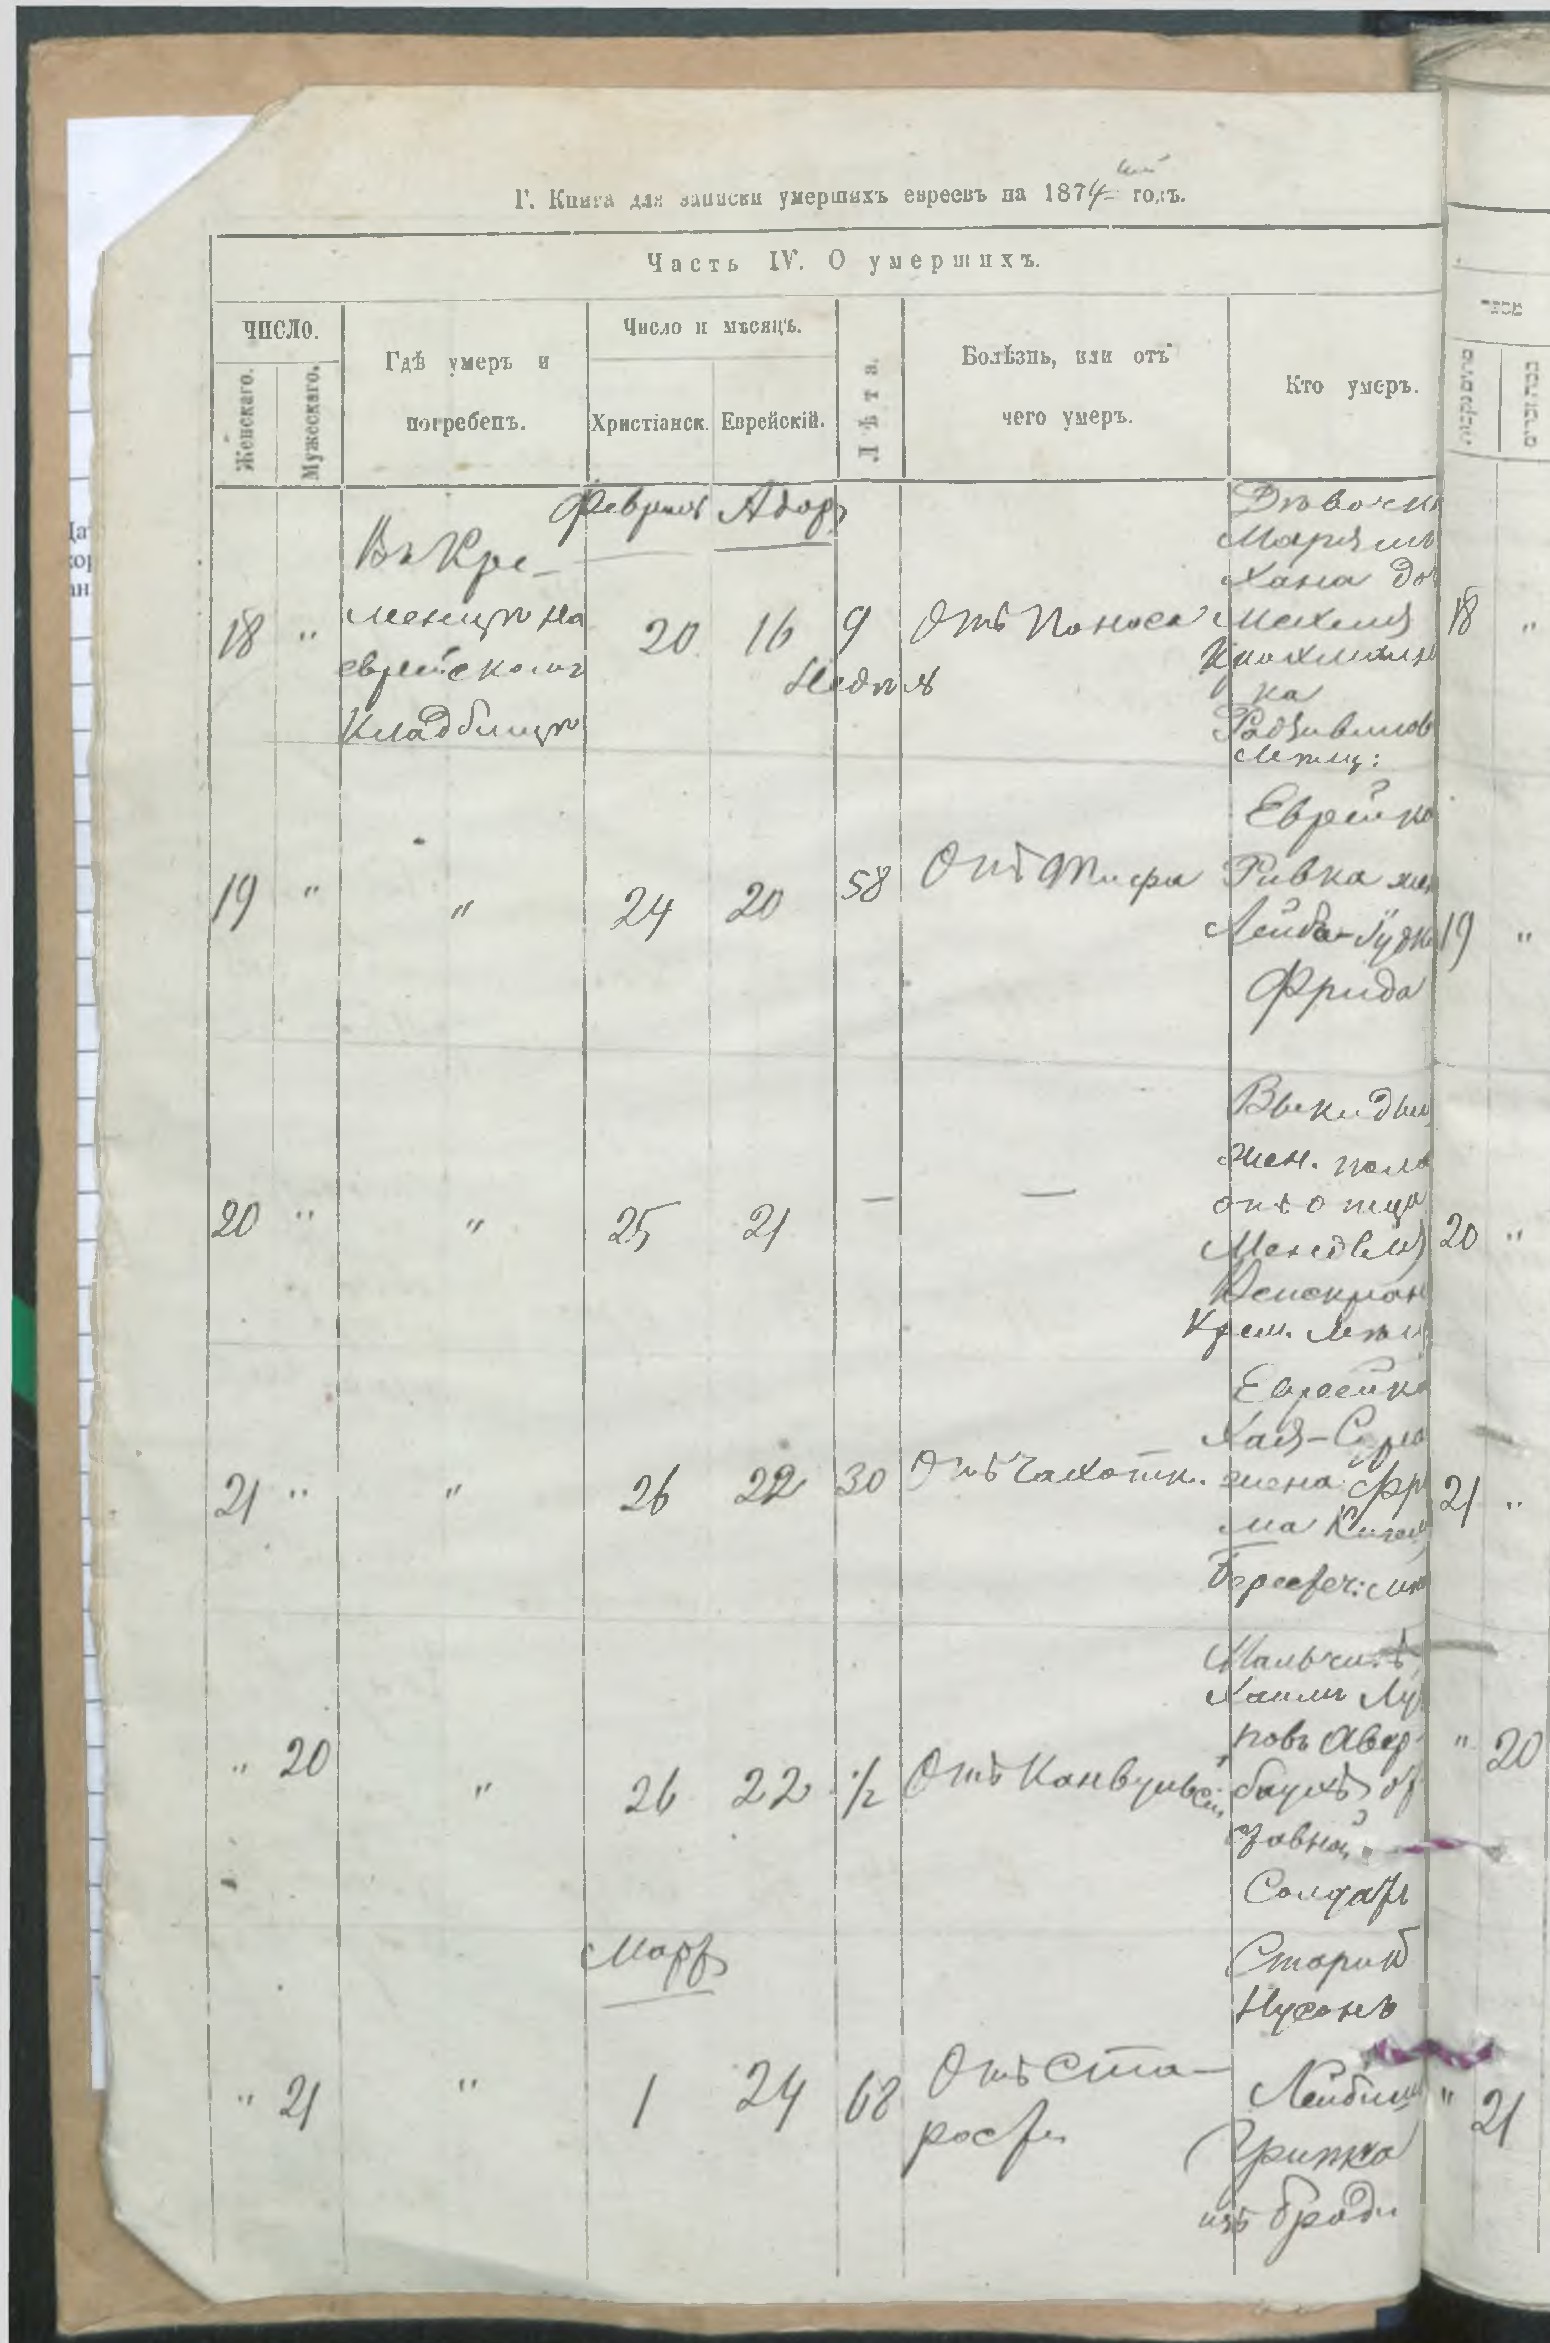 Г. Книга для записки умершихъ евреевъ на 1874 годъ.
Часть IV. О умершихъ.
ЧИСЛО.
Женскаго.
Мужескаго.
Гдѣ умеръ и
погребенъ.
Число и мѣсяцъ.
Христіанск.
Еврейскій.
Лѣта.
Болѣзнь, или отъ
чего умеръ.
Кто умеръ.
מספר
Февраль Адаръ
18 "
Въ Кре-
менцѣ на
еврейскомъ
кладбищѣ
20 16 9
Недѣля
Отъ поноса
Дѣвочка
Марьямъ
Хана до
Мехеля
ка
Радзивилов
мѣщ:
18 "
19 " " 24 20 58 Отъ тифа
Еврейка
Ривка жен
Лейба-Іудк
Фрида
19 "
20 " " 25 21 — —
Выкидыш
жен. пола
отъ отца
Менделя
Крем. мѣщ
20 "
21 " " 26 22 30 Отъ чахотк.
Еврейка
Хая-Сура
жена Фр
ма
21 "
" 20 " 26 22 1/2 Отъ Конвульсіи
Мальчикъ
Хаимъ
повъ Авер-
баухъ от
ставной
Солдатъ
" 20
Мартъ
" 21 " 1 24 68
Отъ ста-
рости
Старикъ
Нусонъ
Лейбиш
Грипка
изъ Броди
" 21